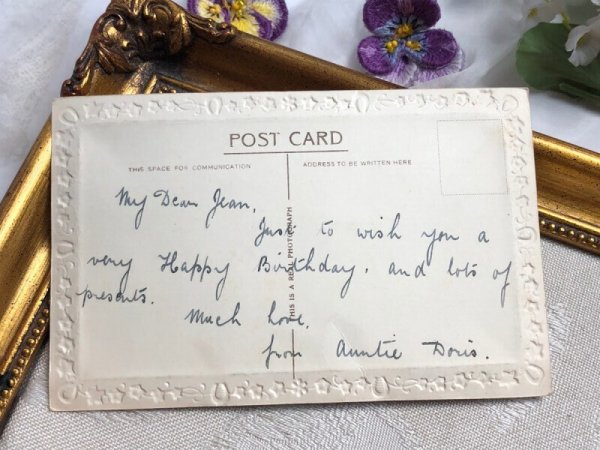 POST CARD
THIS SPACE FOR COMMUNICATION
ADDRESS TO BE WRITTEN HERE
THIS IS A REAL PHOTOGRAPH
My Dear Jean,
Just to wish you a
very Happy Birthday. and lots of
presents.
Much love.
from Auntie Doris.